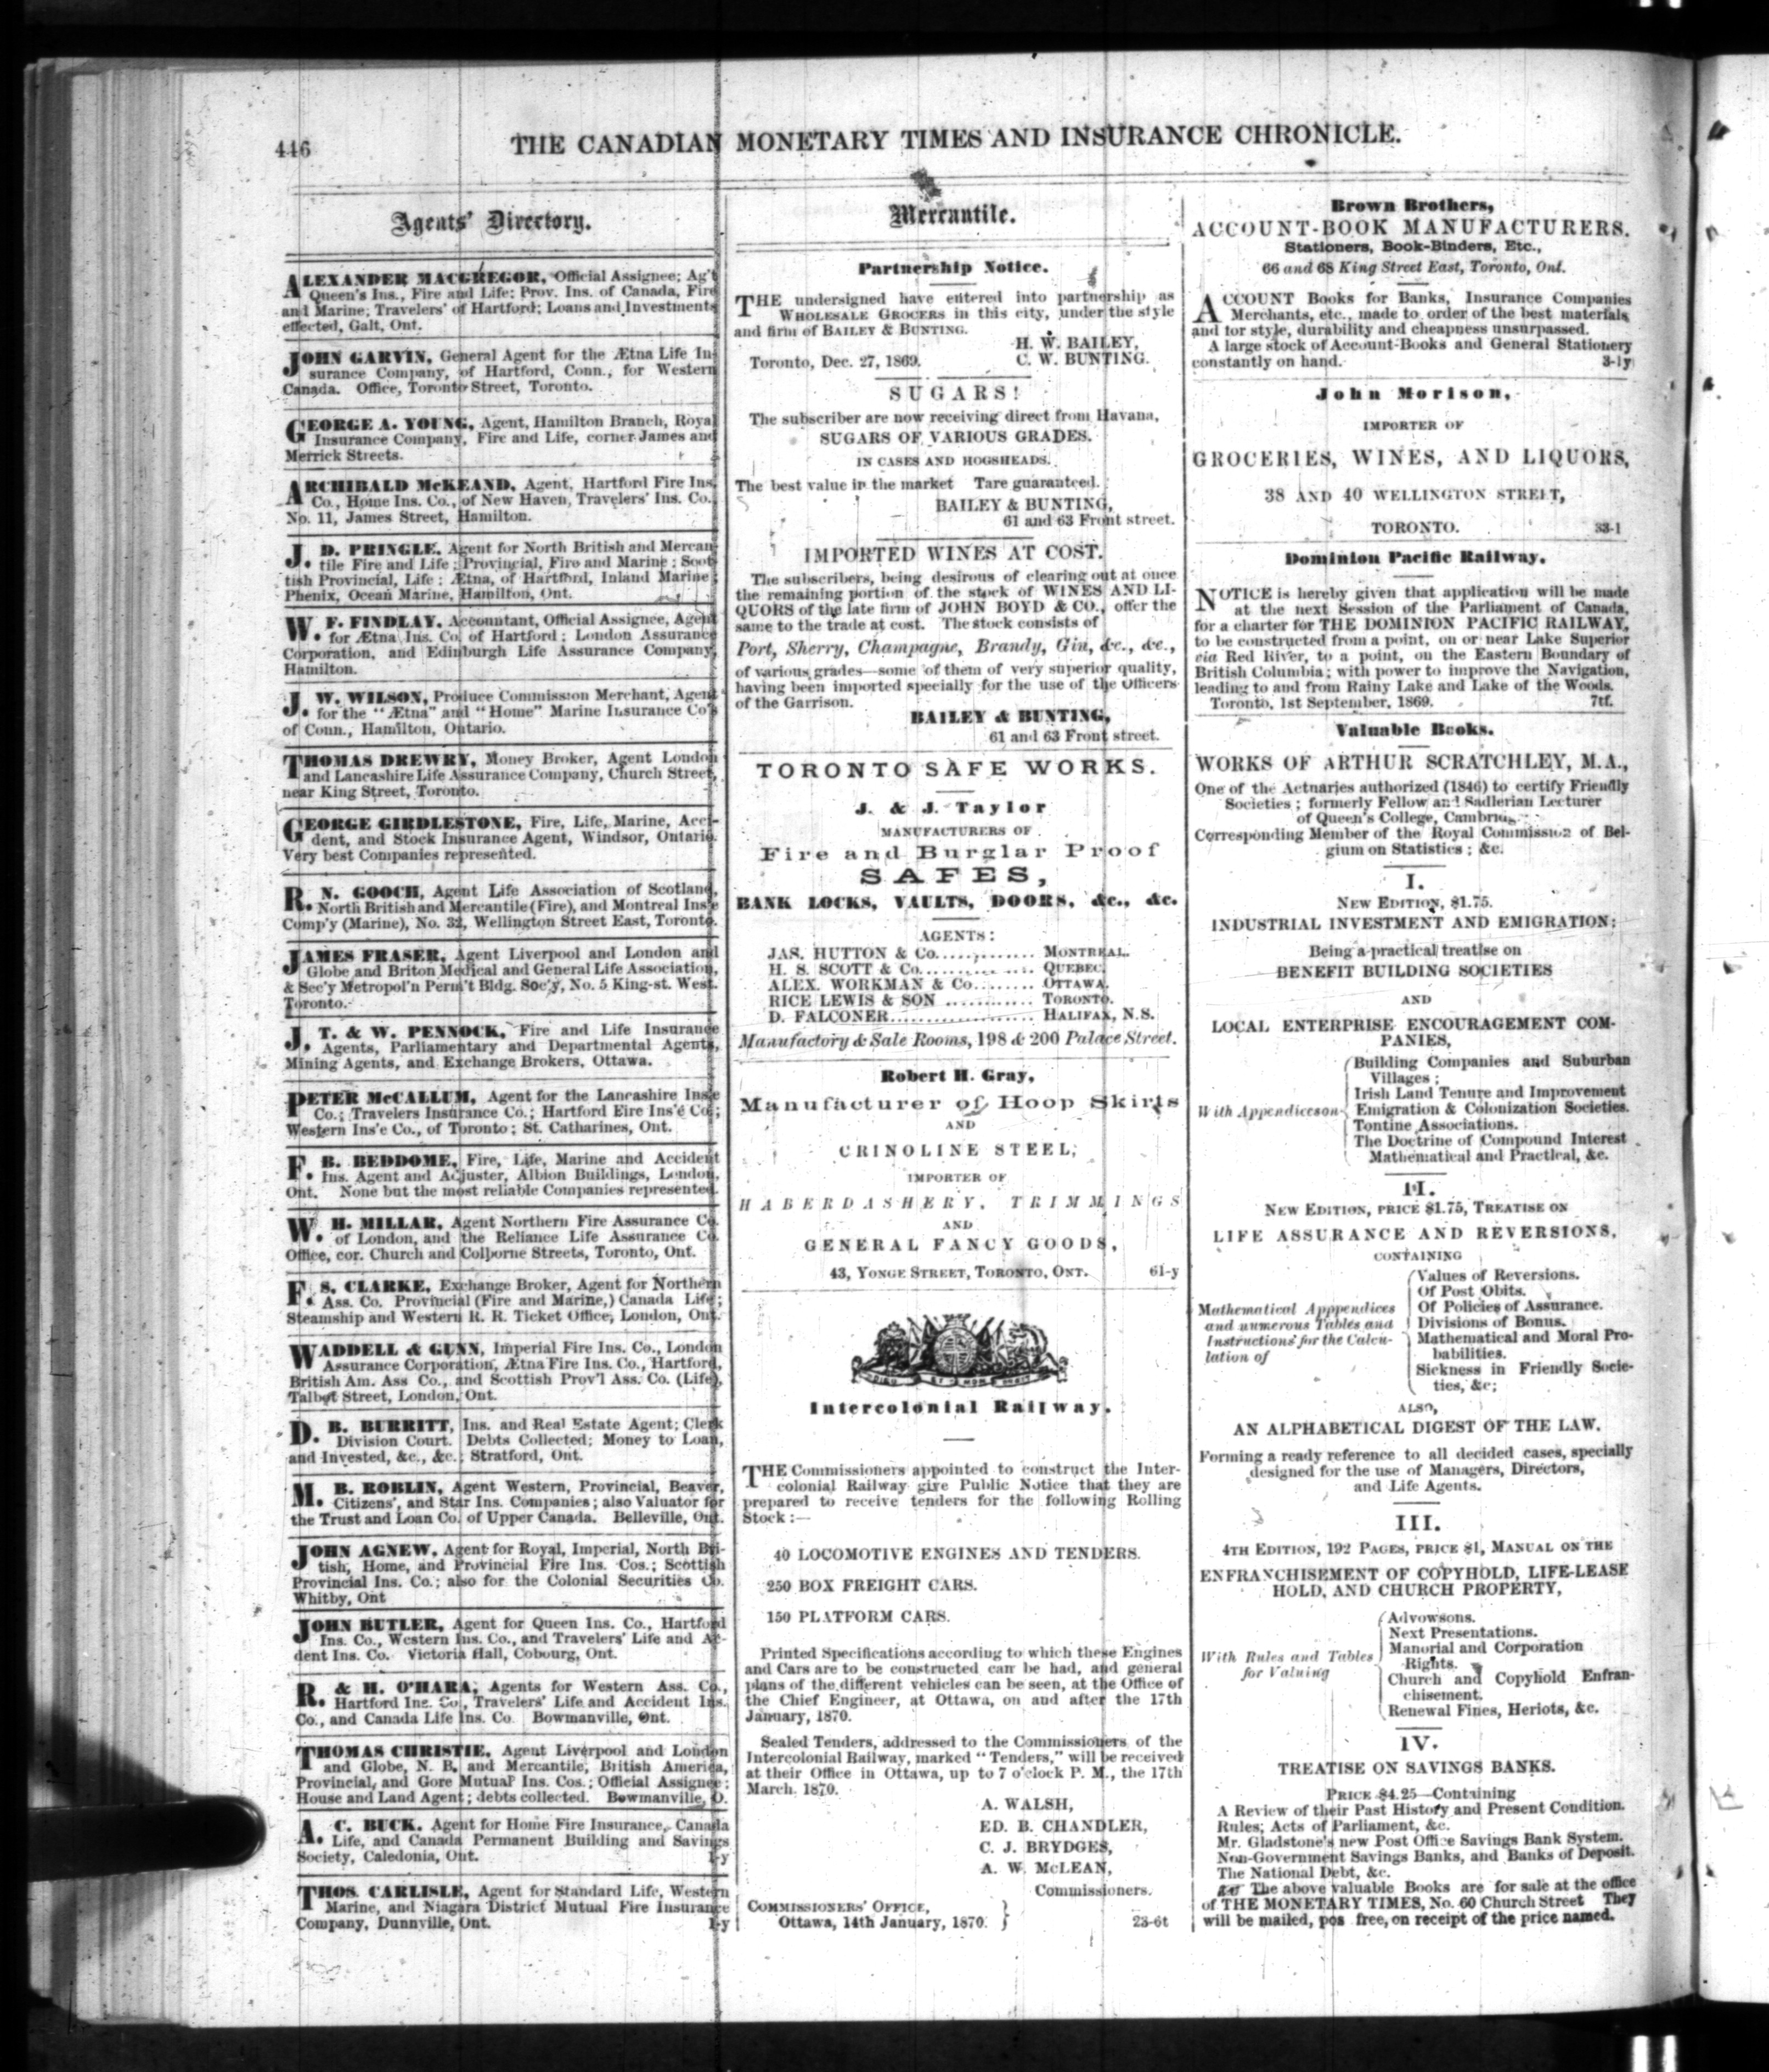 446
THE CANADIAN MONETARY TIMES AND INSURANCE CHRONICLE.
Agents' Directory.
ALEXANDER MACGREGOR, Official Assignee; Ag't
Queen's Ins., Fire and Life; Prov. Ins. of Canada, Fire
and Marine; Travelers' of Hartford; Loans and Investments
effected, Galt, Ont.
JOHN GARVIN, General Agent for the Ætna Life In-
surance Company, of Hartford, Conn., for Western
Canada. Office, Toronto Street, Toronto.
GEORGE A. YOUNG, Agent, Hamilton Branch, Royal
Insurance Company, Fire and Life, corner James and
Merrick Streets.
ARCHIBALD McKEAND, Agent, Hartford Fire Ins.
Co., Home Ins. Co., of New Haven, Travelers' Ins. Co.
No. 11, James Street, Hamilton.
J. D. PRINGLE, Agent for North British and Mercan-
tile Fire and Life; Provincial, Fire and Marine; Scot-
tish Provincial, Life; Ætna, of Hartford, Inland Marine;
Phenix, Ocean Marine, Hamilton, Ont.
W. F. FINDLAY, Accountant, Official Assignee, Agent
for Ætna Ins. Co. of Hartford; London Assurance
Corporation, and Edinburgh Life Assurance Company,
Hamilton.
J. W. WILSON, Produce Commission Merchant, Agent
for the "Ætna" and "Home" Marine Insurance Co's
of Conn., Hamilton, Ontario.
THOMAS DREWRY, Money Broker, Agent London
and Lancashire Life Assurance Company, Church Street,
near King Street, Toronto.
GEORGE GIRDLESTONE, Fire, Life, Marine, Acci-
dent, and Stock Insurance Agent, Windsor, Ontario.
Very best Companies represented.
R. N. GOOCH, Agent Life Association of Scotland,
North British and Mercantile (Fire), and Montreal Ins'e
Comp'y (Marine), No. 32, Wellington Street East, Toronto.
JAMES FRASER, Agent Liverpool and London and
Globe and Briton Medical and General Life Association,
& Sec'y Metropol'n Perm't Bldg. Soc'y, No. 5 King-st. West.
Toronto.
J. T. & W. PENNOCK, Fire and Life Insurance
Agents, Parliamentary and Departmental Agents,
Mining Agents, and Exchange Brokers, Ottawa.
PETER McCALLUM, Agent for the Lancashire Ins'e
Co.; Travelers Insurance Co.; Hartford Eire Ins'e Co.;
Western Ins'e Co., of Toronto; St. Catharines, Ont.
F. B. BEDDOME, Fire, Life, Marine and Accident
Ins. Agent and Adjuster, Albion Buildings, London,
Ont. None but the most reliable Companies represented.
W. H. MILLAR, Agent Northern Fire Assurance Co.
of London, and the Reliance Life Assurance Co.
Office, cor. Church and Colborne Streets, Toronto, Ont.
F. S. CLARKE, Exchange Broker, Agent for Northern
Ass. Co. Provincial (Fire and Marine,) Canada Life;
Steamship and Western R. R. Ticket Office, London, Ont.
WADDELL & GUNN, Imperial Fire Ins. Co., London
Assurance Corporation, Ætna Fire Ins. Co., Hartford,
British Am. Ass Co., and Scottish Prov'l Ass. Co. (Life),
Talbot Street, London, Ont.
D. B. BURRITT, Ins. and Real Estate Agent; Clerk
Division Court. Debts Collected; Money to Loan,
and Invested, &c., &c.; Stratford, Ont.
M. B. ROBLIN, Agent Western, Provincial, Beaver,
Citizens', and Star Ins. Companies; also Valuator for
the Trust and Loan Co. of Upper Canada. Belleville, Ont.
JOHN AGNEW, Agent for Royal, Imperial, North Bri-
tish, Home, and Provincial Fire Ins. Cos.; Scottish
Provincial Ins. Co.; also for the Colonial Securities Co.
Whitby, Ont
JOHN BUTLER, Agent for Queen Ins. Co., Hartford
Ins. Co., Western Ins. Co., and Travelers' Life and Ac-
dent Ins. Co. Victoria Hall, Cobourg, Ont.
R. & H. O'HARA, Agents for Western Ass. Co.,
Hartford Ins. Co., Travelers' Life and Accident Ins.
Co., and Canada Life Ins. Co. Bowmanville, Ont.
THOMAS CHRISTIE, Agent Liverpool and London
and Globe, N. B. and Mercantile, British America,
Provincial, and Gore Mutual Ins. Cos.; Official Assignee;
House and Land Agent; debts collected. Bowmanville, O.
A. C. BUCK, Agent for Home Fire Insurance, Canada
Life, and Canada Permanent Building and Savings
Society, Caledonia, Ont. 1-y
THOS. CARLISLE, Agent for Standard Life, Western
Marine, and Niagara District Mutual Fire Insurance
Company, Dunnville, Ont. 1-y
Mercantile.
Partnership Notice.
THE undersigned have entered into partnership as
WHOLESALE GROCERS in this city, under the style
and firm of BAILEY & BUNTING.
H. W. BAILEY,
Toronto, Dec. 27, 1869. C. W. BUNTING.
SUGARS!
The subscriber are now receiving direct from Havana,
SUGARS OF VARIOUS GRADES.
IN CASES AND HOGSHEADS.
The best value in the market Tare guaranteed.
BAILEY & BUNTING,
61 and 63 Front street.
IMPORTED WINES AT COST.
The subscribers, being desirous of clearing out at once
the remaining portion of the stock of WINES AND LI-
QUORS of the late firm of JOHN BOYD & CO., offer the
same to the trade at cost. The stock consists of
Port, Sherry, Champagne, Brandy, Gin, &c., &c.,
of various grades—some of them of very superior quality,
having been imported specially for the use of the Officers
of the Garrison.
BAILEY & BUNTING,
61 and 63 Front street.
TORONTO SAFE WORKS.
J. & J. Taylor
MANUFACTURERS OF
Fire and Burglar Proof
SAFES,
BANK LOCKS, VAULTS, DOORS, &c., &c.
AGENTS:
JAS. HUTTON & Co............. MONTREAL.
H. S. SCOTT & Co............... QUEBEC.
ALEX. WORKMAN & Co........ OTTAWA.
RICE LEWIS & SON ............ TORONTO.
D. FALCONER.................... HALIFAX, N.S.
Manufactory & Sale Rooms, 198 & 200 Palace Street.
Robert H. Gray,
Manufacturer of Hoop Skirts
AND
CRINOLINE STEEL,
IMPORTER OF
HABERDASHERY, TRIMMINGS
AND
GENERAL FANCY GOODS,
43, YONGE STREET, TORONTO, ONT. 61-y
Intercolonial Railway.
THE Commissioners appointed to construct the Inter-
colonial Railway give Public Notice that they are
prepared to receive tenders for the following Rolling
Stock:—
40 LOCOMOTIVE ENGINES AND TENDERS.
250 BOX FREIGHT CARS.
150 PLATFORM CARS.
Printed Specifications according to which these Engines
and Cars are to be constructed can be had, and general
plans of the different vehicles can be seen, at the Office of
the Chief Engineer, at Ottawa, on and after the 17th
January, 1870.
Sealed Tenders, addressed to the Commissioners of the
Intercolonial Railway, marked "Tenders," will be received
at their Office in Ottawa, up to 7 o'clock P. M., the 17th
March, 1870.
A. WALSH,
ED. B. CHANDLER,
C. J. BRYDGES,
A. W. McLEAN,
Commissioners.
COMMISSIONERS' OFFICE,
Ottawa, 14th January, 1870. 23-6t
Brown Brothers,
ACCOUNT-BOOK MANUFACTURERS.
Stationers, Book-Binders, Etc.,
66 and 68 King Street East, Toronto, Ont.
ACCOUNT Books for Banks, Insurance Companies
Merchants, etc., made to order of the best materials
and for style, durability and cheapness unsurpassed.
A large stock of Account-Books and General Stationery
constantly on hand. 3-1y
John Morison,
IMPORTER OF
GROCERIES, WINES, AND LIQUORS,
38 AND 40 WELLINGTON STREET,
TORONTO. 33-1
Dominion Pacific Railway.
NOTICE is hereby given that application will be made
at the next Session of the Parliament of Canada,
for a charter for THE DOMINION PACIFIC RAILWAY,
to be constructed from a point, on or near Lake Superior
via Red River, to a point, on the Eastern Boundary of
British Columbia; with power to improve the Navigation,
leading to and from Rainy Lake and Lake of the Woods.
Toronto, 1st September, 1869. 7tf.
Valuable Books.
WORKS OF ARTHUR SCRATCHLEY, M.A.,
One of the Actuaries authorized (1846) to certify Friendly
Societies; formerly Fellow and Sadlerian Lecturer
of Queen's College, Cambridge
Corresponding Member of the Royal Commission of Bel-
gium on Statistics; &c.
I.
NEW EDITION, $1.75.
INDUSTRIAL INVESTMENT AND EMIGRATION;
Being a practical treatise on
BENEFIT BUILDING SOCIETIES
AND
LOCAL ENTERPRISE ENCOURAGEMENT COM-
PANIES,
With Appendices on
Building Companies and Suburban
Villages;
Irish Land Tenure and Improvement
Emigration & Colonization Societies.
Tontine Associations.
The Doctrine of Compound Interest
Mathematical and Practical, &c.
II.
NEW EDITION, PRICE $1.75, TREATISE ON
LIFE ASSURANCE AND REVERSIONS,
CONTAINING
Mathematical Apppendices
and numerous Tables and
Instructions for the Calcu-
lation of
Values of Reversions.
Of Post Obits.
Of Policies of Assurance.
Divisions of Bonus.
Mathematical and Moral Pro-
babilities.
Sickness in Friendly Socie-
ties, &c;
ALSO,
AN ALPHABETICAL DIGEST OF THE LAW.
Forming a ready reference to all decided cases, specially
designed for the use of Managers, Directors,
and Life Agents.
III.
4TH EDITION, 192 PAGES, PRICE $1, MANUAL ON THE
ENFRANCHISEMENT OF COPYHOLD, LIFE-LEASE
HOLD, AND CHURCH PROPERTY,
With Rules and Tables
for Valuing
Advowsons.
Next Presentations.
Manorial and Corporation
Rights.
Church and Copyhold Enfran-
chisement.
Renewal Fines, Heriots, &c.
IV.
TREATISE ON SAVINGS BANKS.
PRICE $4.25—Containing
A Review of their Past History and Present Condition.
Rules; Acts of Parliament, &c.
Mr. Gladstone's new Post Office Savings Bank System.
Non-Government Savings Banks, and Banks of Deposit.
The National Debt, &c.
The above valuable Books are for sale at the office
of THE MONETARY TIMES, No. 60 Church Street They
will be mailed, pos free, on receipt of the price named.